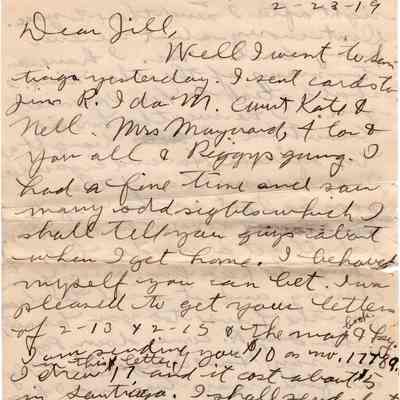 2-23-19
Dear Jill,
Well I went to San
tiago yesterday. I sent cards to
Jim R. Ida M. Aunt Kate &
Nell. Mrs Maynard, 4 to &
you all & Peggys gang. I
had a fine time and saw
many odd sights which I
shall tell you guys about
when I get home. I behaved
myself you can bet. I was
pleased to get your letters
of 2-13 & 2-15 & the map &
I am sending you $10 as no. 17489.
in this letter
I drew 17 and it cost about 5
in Santiago. I shall send